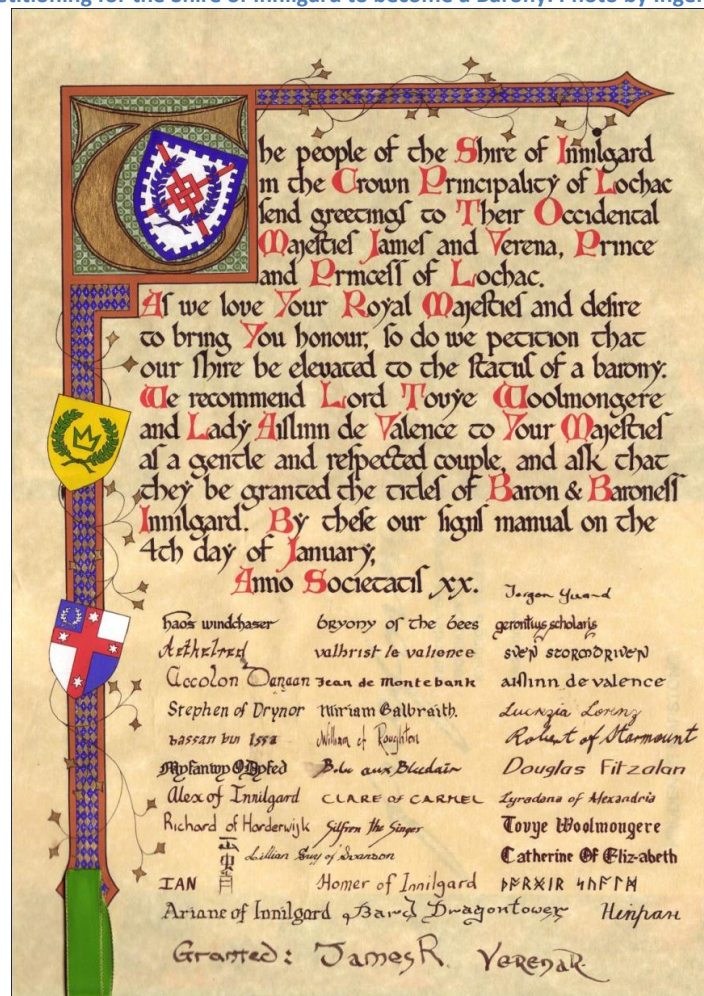 titioning for the Shire of Innilgard to become a Barony. Photo by Inge
The people of the Shire of Innilgard
in the Crown Principality of Lochac
send greetings to Their Occidental
Majesties James and Verena, Prince
and Princess of Lochac.
As we love Your Royal Majesties and desire
to bring You honour, so do we petition that
our shire be elevated to the status of a barony.
We recommend Lord Tovye Woolmongere
and Lady Aislinn de Valence to Your Majesties
as a gentle and respected couple, and ask that
they be granted the titles of Baron & Baroness
Innilgard. By these our signs manual on the
4th day of January,
Anno Societatis xx.
haos windchaser bryony of the bees gerontius scholaris
Aethelred valhrist le valience SVEN STORMDRIVEN
Accolon Danaan Jean de Montebank aislinn de valence
Stephen of Drynor Miriam Galbraith. Lucrezia Lorenz
bassan bin Issa William of Roughton Robert of Starmount
Myfanwy O Dyfed Douglas Fitzalan
Alex of Innilgard CLARE OF CARMEL Lyradana of Alexandria
Richard of Harderwijk Silfren the Singer Tovye Woolmongere
Lillian Guy of Swanson Catherine Of Eliz-abeth
IAN Homer of Innilgard
Ariane of Innilgard Bard Dragontower
Granted: James R. Verena R.